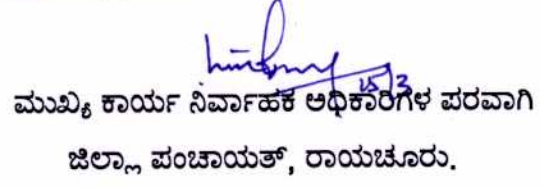 15/3
ಮುಖ್ಯ ಕಾರ್ಯ ನಿರ್ವಾಹಕ ಅಧಿಕಾರಿಗಳ ಪರವಾಗಿ
ಜಿಲ್ಲಾ ಪಂಚಾಯತ್, ರಾಯಚೂರು.